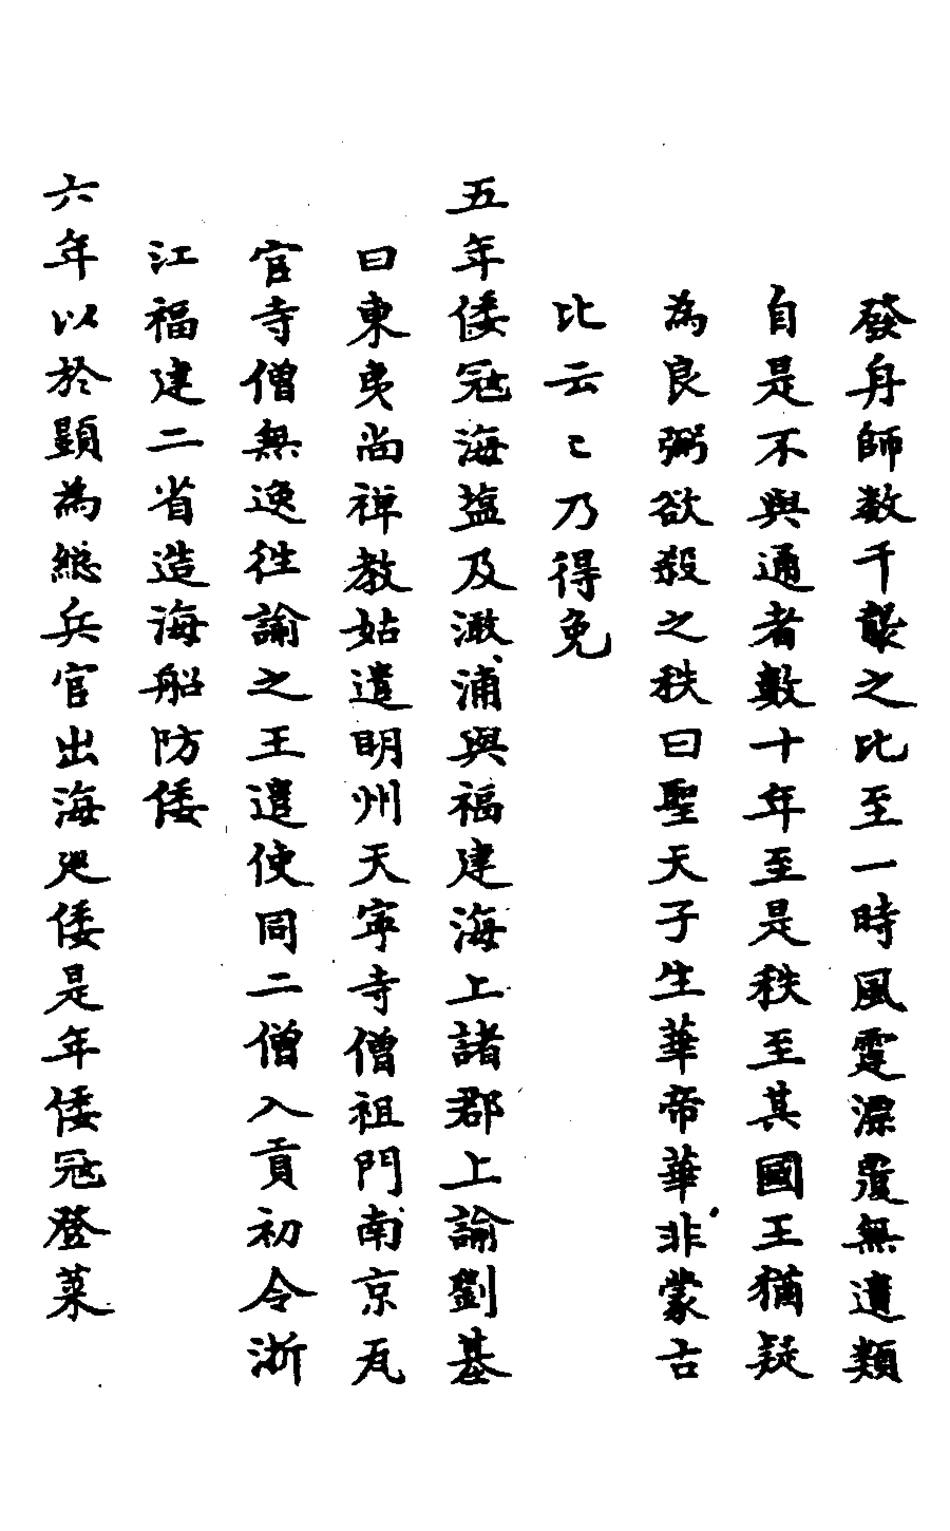 發舟師数千襲之比至一時風霆漂覆無遺類
自是不與通者數十年至是秩至其國王猶疑
為良弼欲殺之秩曰聖天子生華帝華非蒙古
比云〻乃得免
五年倭冦海塩及澉浦與福建海上諸郡上諭劉基
曰東夷尚禅教姑遣明州天寧寺僧祖門南京瓦
官寺僧無逸徃諭之王遣使同二僧入貢初令浙
江福建二省造海船防倭
六年以於顕為総兵官出海廵倭是年倭冦登萊